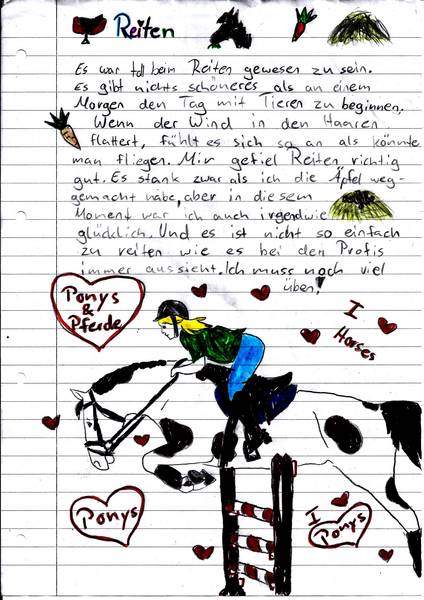 Reiten
Es war toll beim Reiten gewesen zu sein.
Es gibt nichts schöneres als an einem
Morgen den Tag mit Tieren zu beginnen.
Wenn der Wind in den Haaren
flattert, fühlt es sich so an als könnte
man fliegen. Mir gefiel Reiten richtig
gut. Es stank zwar als ich die Äpfel weg-
gemacht habe, aber in diesem
Moment war ich auch irgendwie
glücklich. Und es ist nicht so einfach
zu reiten wie es bei den Profis
immer aussicht. Ich muss noch viel
üben!
Ponys
&
Pferde
I
Horses
Ponys
I
Ponys